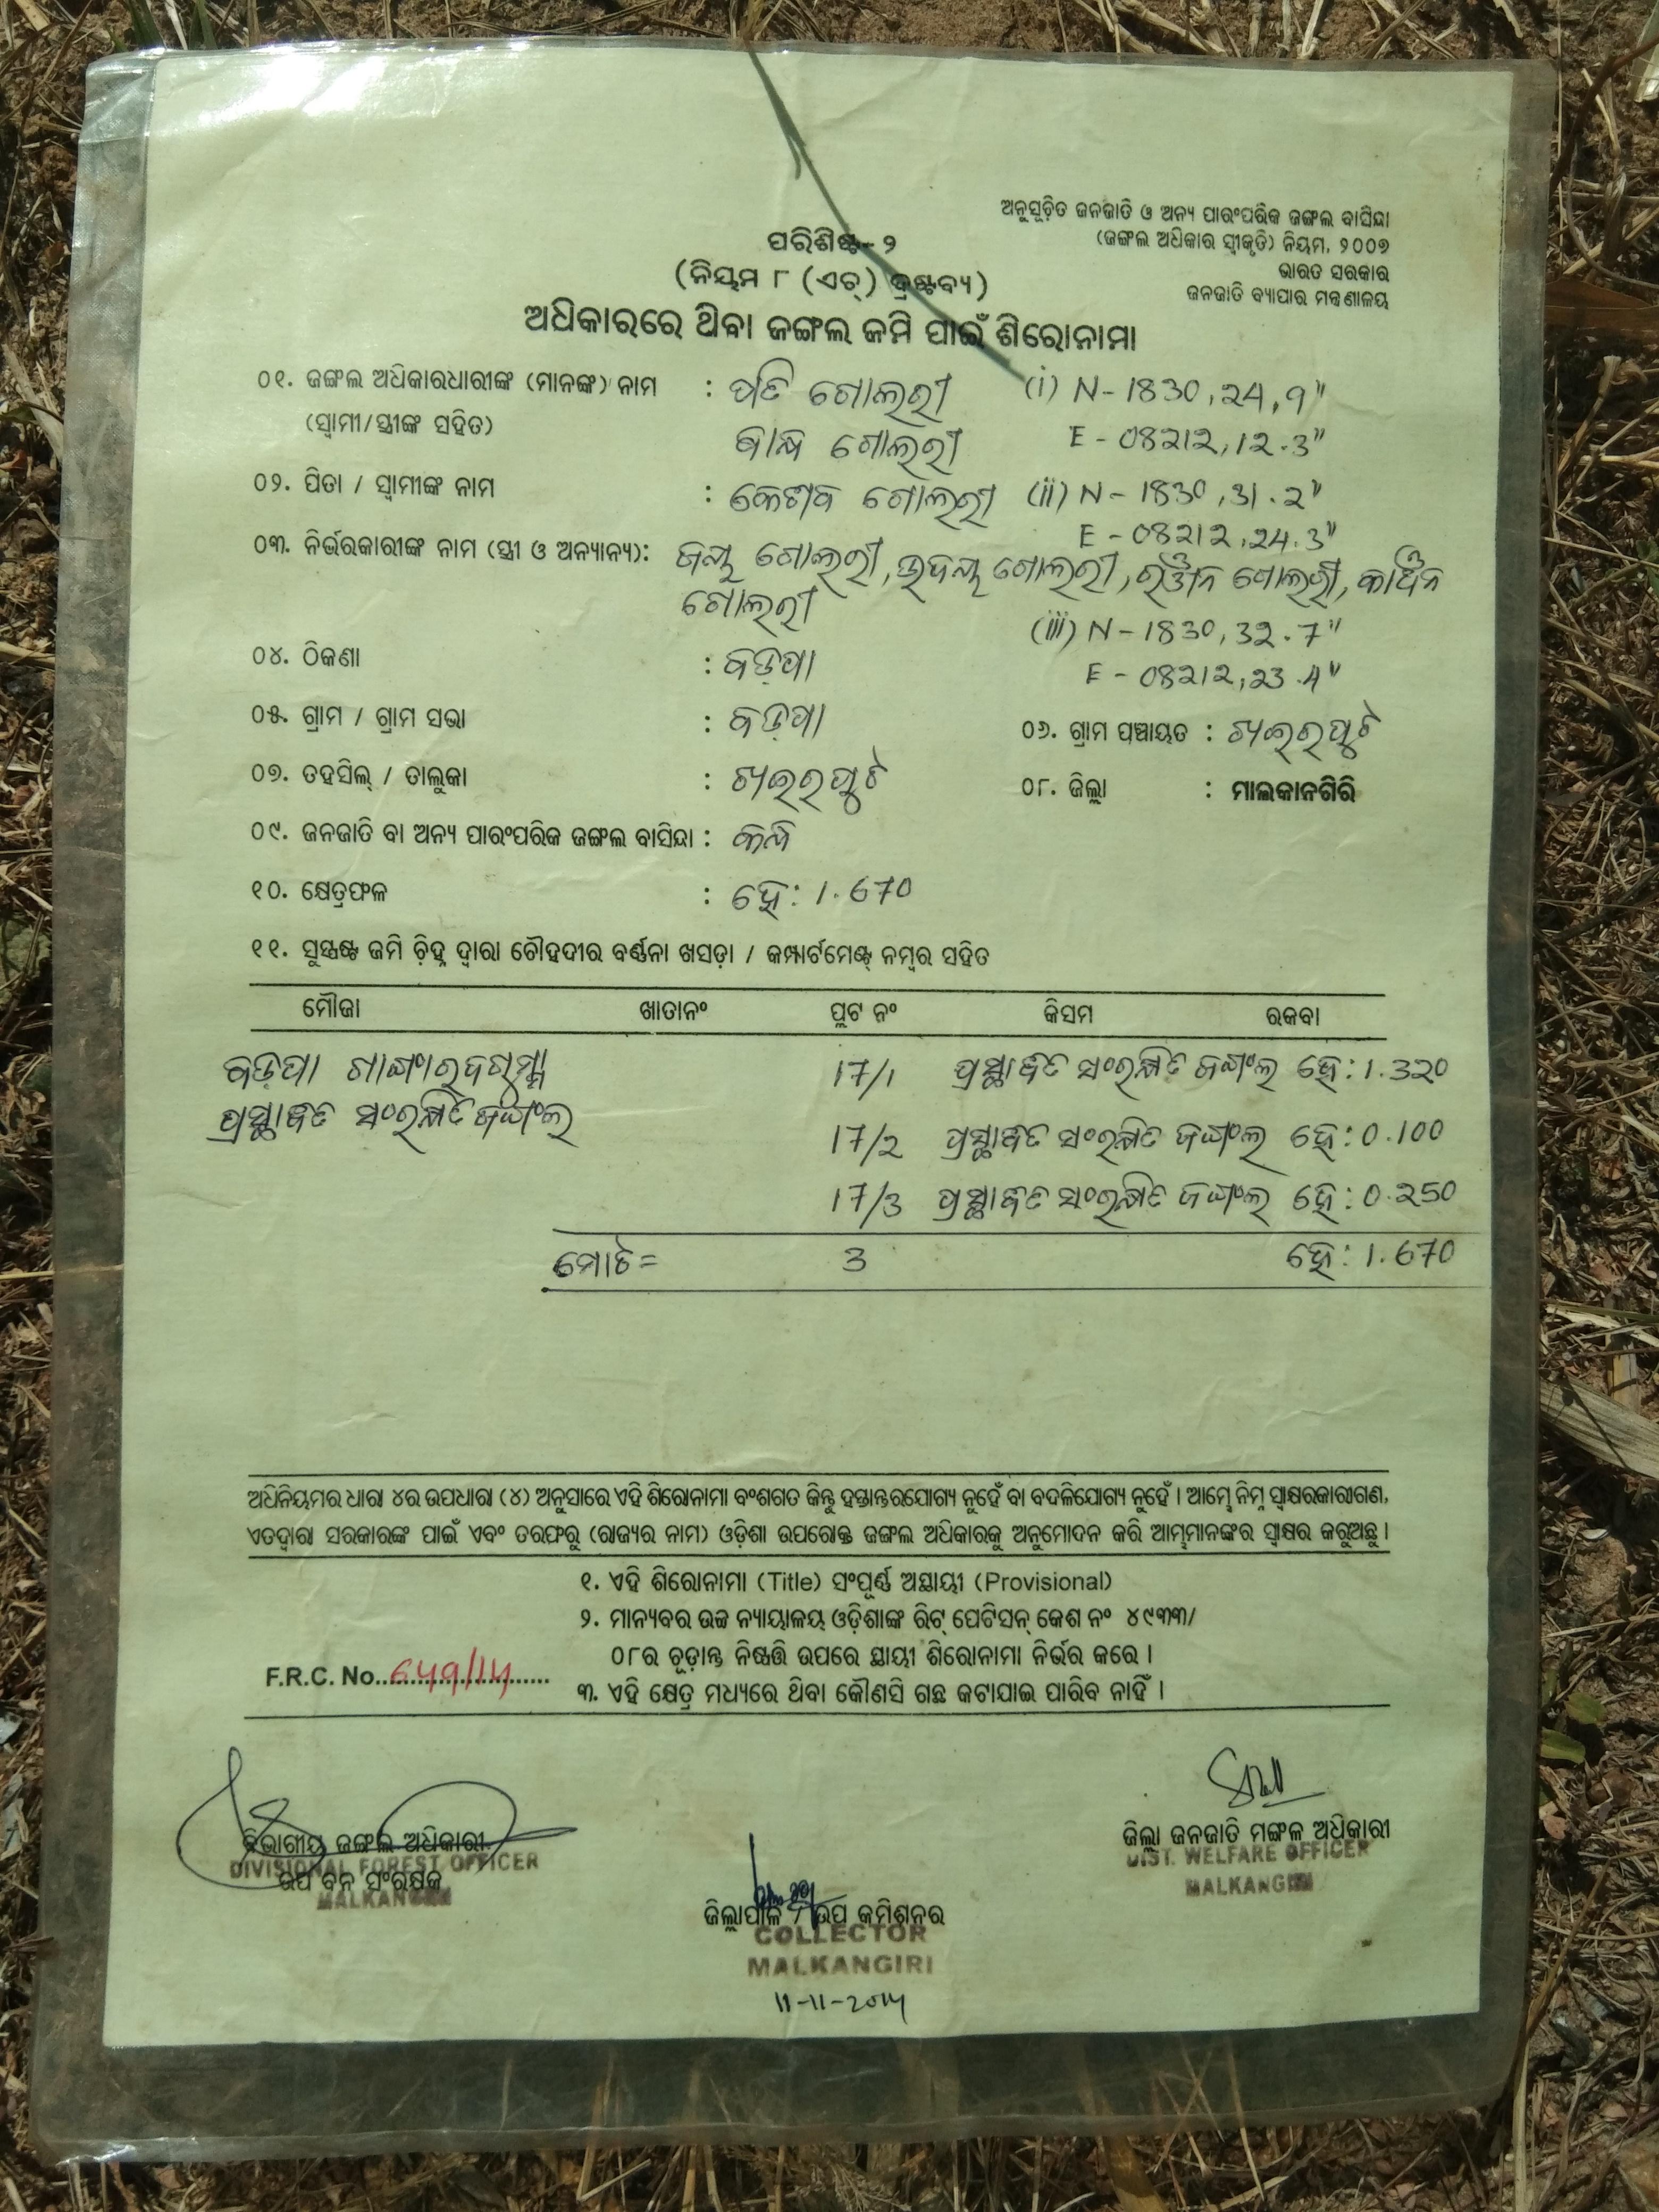 ଅନୁସୂଚିତ ଜନଜାତି ଓ ଅନ୍ୟ ପାରଂପରିକ ଜଙ୍ଗଲ ବାସିନ୍ଦା
(ଜଙ୍ଗଲ ଅଧିକାର ସ୍ୱୀକୃତି) ନିୟମ, ୨୦୦୭
ଭାରତ ସରକାର
ଜନଜାତି ବ୍ୟାପାର ମନ୍ତ୍ରଣାଳୟ
ପରିଶିଷ୍ଟ - ୨
(ନିୟମ ୮ (ଏଚ୍) ଦ୍ରଷ୍ଟବ୍ୟ)
ଅଧିକାରରେ ଥିବା ଜଙ୍ଗଲ ଜମି ପାଇଁ ଶିରୋନାମା
୦୧. ଜଙ୍ଗଲ ଅଧିକାରଧାରୀଙ୍କ (ମାନଙ୍କ) ନାମ : ପତି ଗୋଲରୀ (i) N-1830,24,9"
(ସ୍ୱାମୀ/ସ୍ତ୍ରୀଙ୍କ ସହିତ) ଗୋଲରୀ E-08212,12.3"
୦୨. ପିତା / ସ୍ୱାମୀଙ୍କ ନାମ : କେଶବ ଗୋଲରୀ (ii) N-1830,31.2"
E-08212,24.3"
୦୩. ନିର୍ଭରକାରୀଙ୍କ ନାମ (ସ୍ତ୍ରୀ ଓ ଅନ୍ୟାନ୍ୟ): ଗୋଲରୀ, ଉଦୟ ଗୋଲରୀ, ଗୋଲରୀ,
ଗୋଲରୀ
(iii) N-1830,32.7"
୦୪. ଠିକଣା : ବଡ଼ପା E-08212,23.4"
୦୫. ଗ୍ରାମ / ଗ୍ରାମ ସଭା : ବଡ଼ପା ୦୬. ଗ୍ରାମ ପଞ୍ଚାୟତ : ଖଇରପୁଟ
୦୭. ତହସିଲ୍ / ତାଲୁକା : ଖଇରପୁଟ ୦୮. ଜିଲ୍ଲା : ମାଲକାନଗିରି
୦୯. ଜନଜାତି ବା ଅନ୍ୟ ପାରଂପରିକ ଜଙ୍ଗଲ ବାସିନ୍ଦା :
୧୦. କ୍ଷେତ୍ରଫଳ : ହେ: 1.670
୧୧. ସୁସ୍ପଷ୍ଟ ଜମି ଚିହ୍ନ ଦ୍ୱାରା ଚୌହଦୀର ବର୍ଣ୍ଣନା ଖସଡ଼ା / କମ୍ପାର୍ଟମେଣ୍ଟ୍ ନମ୍ବର ସହିତ
ମୌଜା ଖାତାନଂ ପ୍ଲଟ ନଂ କିସମ ରକବା
ବଡ଼ପା 17/1 ପ୍ରସ୍ତାବିତ ସଂରକ୍ଷିତ ଜଙ୍ଗଲ ହେ: 1.320
ପ୍ରସ୍ତାବିତ ସଂରକ୍ଷିତ ଜଙ୍ଗଲ
17/2 ପ୍ରସ୍ତାବିତ ସଂରକ୍ଷିତ ଜଙ୍ଗଲ ହେ: 0.100
17/3 ପ୍ରସ୍ତାବିତ ସଂରକ୍ଷିତ ଜଙ୍ଗଲ ହେ: 0.250
ମୋଟ= 3 ହେ: 1.670
ଅଧିନିୟମର ଧାରା ୪ର ଉପଧାରା (୪) ଅନୁସାରେ ଏହି ଶିରୋନାମା ବଂଶଗତ କିନ୍ତୁ ହସ୍ତାନ୍ତରଯୋଗ୍ୟ ନୁହେଁ ବା ବଦଳିଯୋଗ୍ୟ ନୁହେଁ । ଆମ୍ଭେ ନିମ୍ନ ସ୍ୱାକ୍ଷରକାରୀଗଣ,
ଏତଦ୍ୱାରା ସରକାରଙ୍କ ପାଇଁ ଏବଂ ତରଫରୁ (ରାଜ୍ୟର ନାମ) ଓଡ଼ିଶା ଉପରୋକ୍ତ ଜଙ୍ଗଲ ଅଧିକାରକୁ ଅନୁମୋଦନ କରି ଆମ୍ଭମାନଙ୍କର ସ୍ୱାକ୍ଷର କରୁଅଛୁ ।
୧. ଏହି ଶିରୋନାମା (Title) ସଂପୂର୍ଣ୍ଣ ଅସ୍ଥାୟୀ (Provisional)
୨. ମାନ୍ୟବର ଉଚ୍ଚ ନ୍ୟାୟାଳୟ ଓଡ଼ିଶାଙ୍କ ରିଟ୍ ପେଟିସନ୍ କେଶ ନଂ ୪୯୩୩/
୦୮ର ଚୂଡ଼ାନ୍ତ ନିଷ୍ପତ୍ତି ଉପରେ ସ୍ଥାୟୀ ଶିରୋନାମା ନିର୍ଭର କରେ ।
F.R.C. No. 649/14
୩. ଏହି କ୍ଷେତ୍ର ମଧ୍ୟରେ ଥିବା କୌଣସି ଗଛ କଟାଯାଇ ପାରିବ ନାହିଁ ।
ବିଭାଗୀୟ ଜଙ୍ଗଲ ଅଧିକାରୀ
DIVISIONAL FOREST OFFICER
ଉପ ବନ ସଂରକ୍ଷକ
MALKANGIRI
ଜିଲ୍ଲା ଜନଜାତି ମଙ୍ଗଳ ଅଧିକାରୀ
DIST. WELFARE OFFICER
MALKANGIRI
ଜିଲ୍ଲାପାଳ / ଉପ କମିଶନର
COLLECTOR
MALKANGIRI
11-11-2014